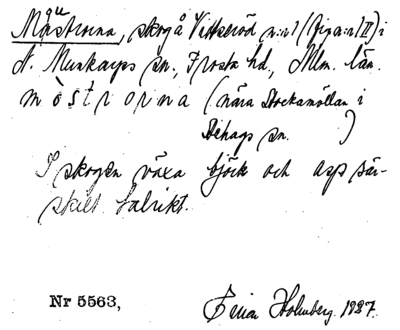 Mästrorna, skog å Vittseröd n:r 1 (fig a:r II) i
N. Munkarps sn., Frosta hd., Mlm. län.
mòstrorna (nära Stockamöllan i
Bihags sn. )
I skogen växa björk och asp sär-
skilt talrikt.
Nr 5563,
Holmberg. 1927.